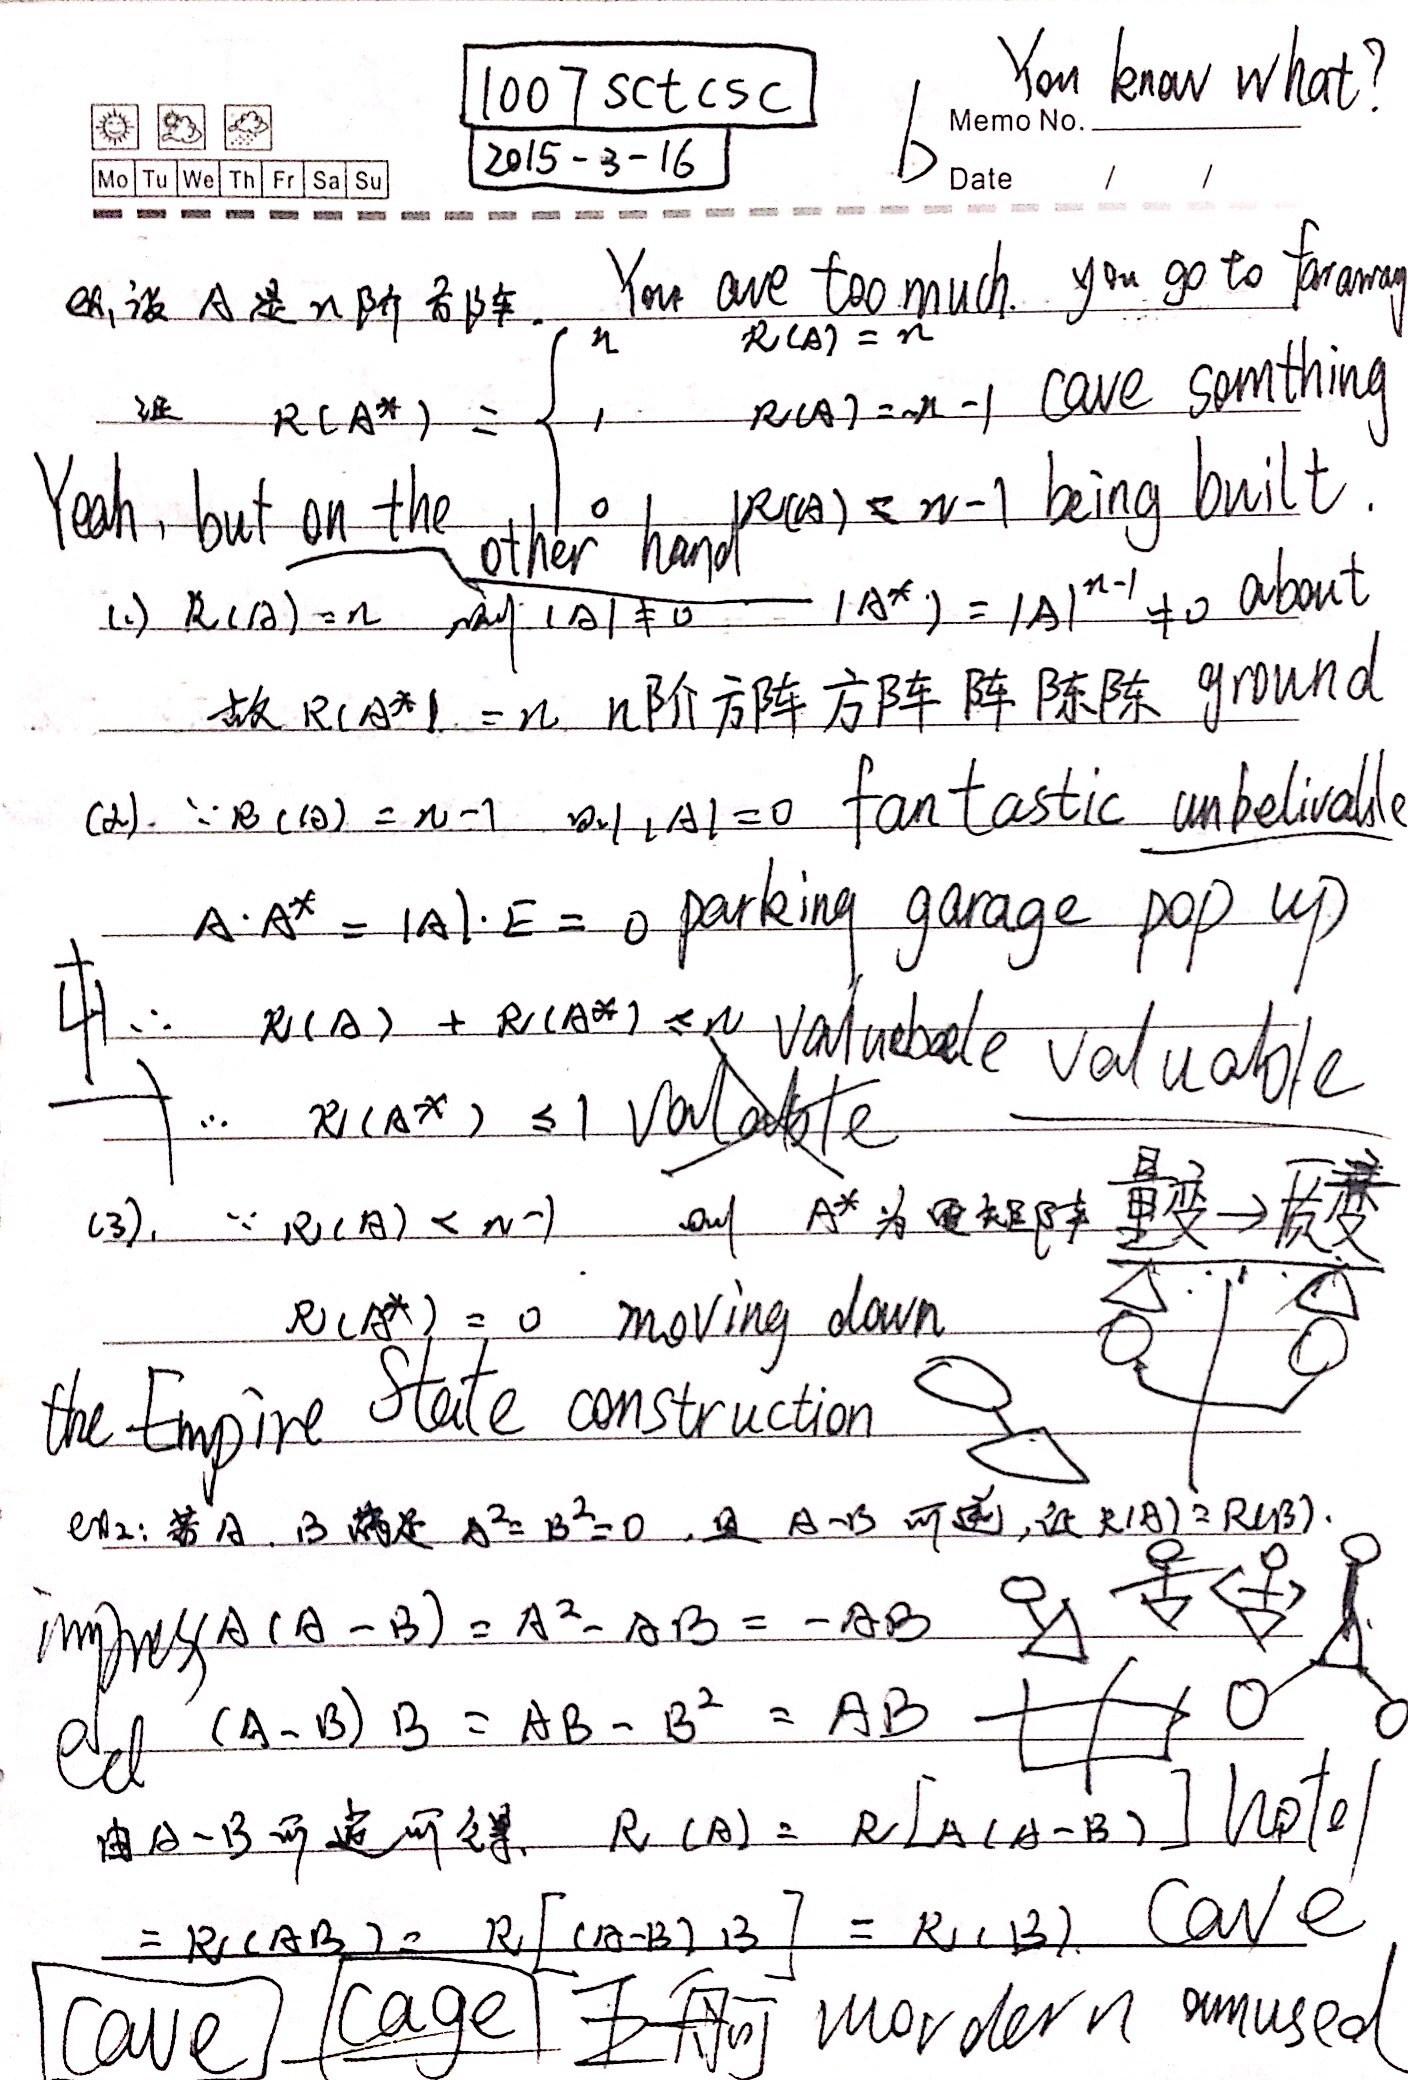 You know what?
1007 sctcsc
2015-3-16
b
Memo No.
Date / /
Mo Tu We Th Fr Sa Su
ex1 设 A 是 n 阶方阵. You are too much. you go to faraway
n R(A) = n
证 R(A*) = 1 R(A) = n-1 cave somthing
Yeah, but on the other hand 0 R(A) < n-1 being built.
(1) R(A) = n 则 |A| ≠ 0 |A*| = |A|^{n-1} ≠ 0 about
故 R(A*) = n n阶方阵方阵 阵 陈陈 ground
(2). ∵ R(A) = n-1 则 |A| = 0 fantastic unbelivable
A·A* = |A|·E = 0 parking garage pop up
∴ R(A) + R(A*) ≤ n valuebale valuable
∴ R(A*) ≤ 1
(3). ∵ R(A) < n-1 则 A* 为零矩阵 量变→质变
R(A*) = 0 moving down
the Empire State construction
ex2: 若 A, B 满足 A²=B²=0, 且 A-B 可逆, 证 R(A)=R(B).
impress A(A-B) = A²-AB = -AB
ed (A-B)B = AB-B² = AB
由 A-B 可逆可得 R(A) = R[A(A-B)] hotel
= R(AB) = R[(A-B)B] = R(B) cave
cave cage mordern amused